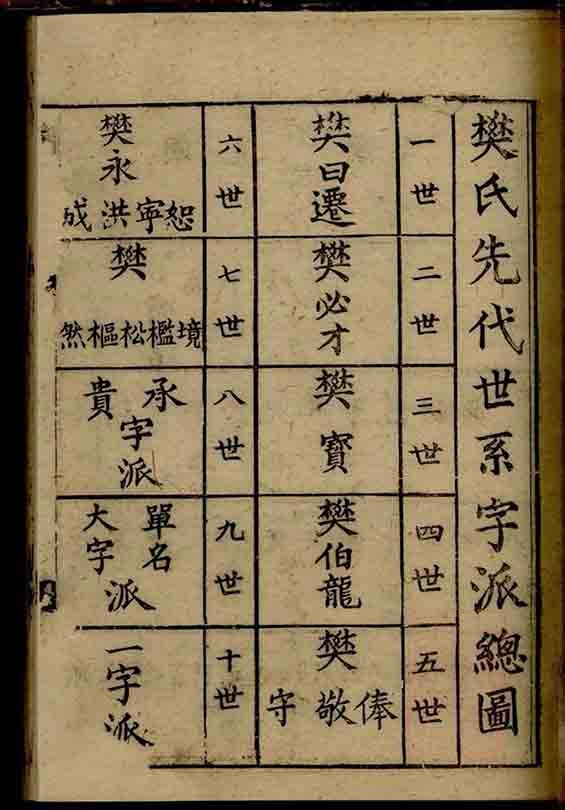 樊氏先代世系字派總圖
一世
樊曰遷
二世
樊必才
三世
樊寶
四世
樊伯龍
五世
樊
俸敬守
六世
樊永
恕寜洪成
七世
樊
境檻松樞然
八世
承貴
字派
九世
單名
大字
派
十世
一字派